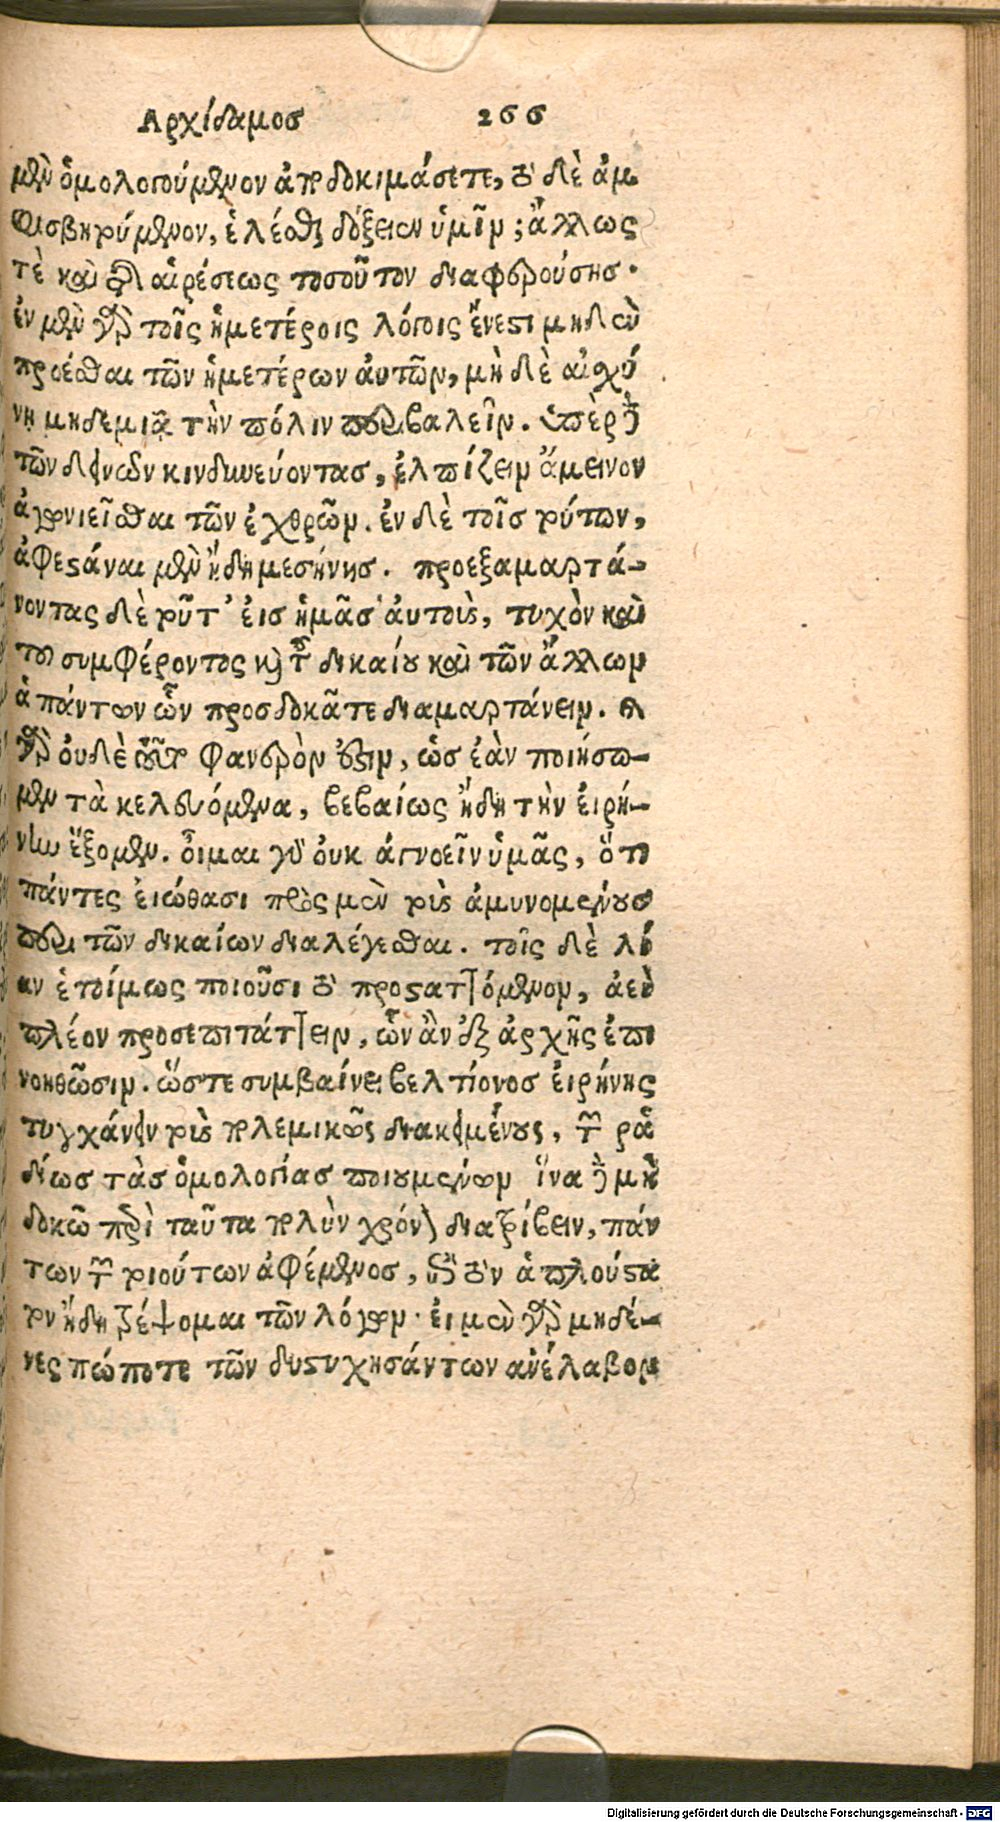 Αρχίδαμος 266
μὲν ὁμολογούμενον ἀποδοκιμάσετε, τὸ δὲ ἀμ
φισβητούμενον, ἑλέσθαι δόξειεν ὑμῖν; ἄλλως
τὲ καὶ τῆς αἱρέσεως τοσοῦτον διαφερούσης.
ἐν μὲν γὰρ τοῖς ἡμετέροις λόγοις ἔνεστι μηδὲν
προέσθαι τῶν ἡμετέρων ἀυτῶν, μὴ δὲ αἰσχύ
νῃ μηδεμιᾷ τὴν πόλιν περιβαλεῖν. ὑπὲρ τὲ
τῶν δεινῶν κινδυνεύοντας, ἐλπίζειν ἄμεινον
ἀγωνιεῖσθαι τῶν ἐχθρῶν. ἐν δὲ τοῖς τούτων,
ἀφεστάναι μὲν ἤδη μεσήνης. προεξαμαρτά-
νοντας δὲ τοῦτ’ ἐις ἡμᾶς ἀυτοὺς, τυχὸν καὶ
τοῦ συμφέροντος κὶ τοῦ δικαίου καὶ τῶν ἄλλων
ἁπάντων ὧν προσδοκᾶτε διαμαρτάνειν. ὀυ
γὰρ ὀυδὲ τοῦτο φανερὸν ἐστιν, ὡς ἐὰν ποιήσω-
μεν τὰ κελευόμενα, βεβαίως ἤδη τὴν ἐιρή-
νην ἕξομεν. ὄιμαι γὰρ ὀυκ ἀγνοεῖν ὑμᾶς, ὅτι
πάντες ἐιώθασι πρὸς μὲν τοὺς ἀμυνομένους
περὶ τῶν δικαίων διαλέγεσθαι. τοῖς δὲ λί
αν ἑτοίμως ποιοῦσι τὸ προσταττόμενον, ἀεὶ
πλέον προσεπιτάττειν, ὧν ἂν ἐξ ἀρχῆς ἐπι
νοηθῶσιν. ὥστε συμβαίνει βελτίονος ἐιρήνης
τυγχάνειν τοὺς πολεμικῶς διακειμένους, τῶν ῥᾳ
δίως τὰς ὁμολογίας ποιουμένων ἵνα δὲ μὴ
δοκῶ περὶ ταῦτα πολὺν χρόνον διατρίβειν, πάν
των τῶν τοιούτων ἀφέμενος, ἐπὶ τὸν ἁπλούστα
τον ἤδη τρέψομαι τῶν λόγων· ἐι μὲν γὰρ μηδέ-
νες πώποτε τῶν δυστυχησάντων ἀνέλαβον
Digitalisierung gefördert durch die Deutsche Forschungsgemeinschaft - DFG